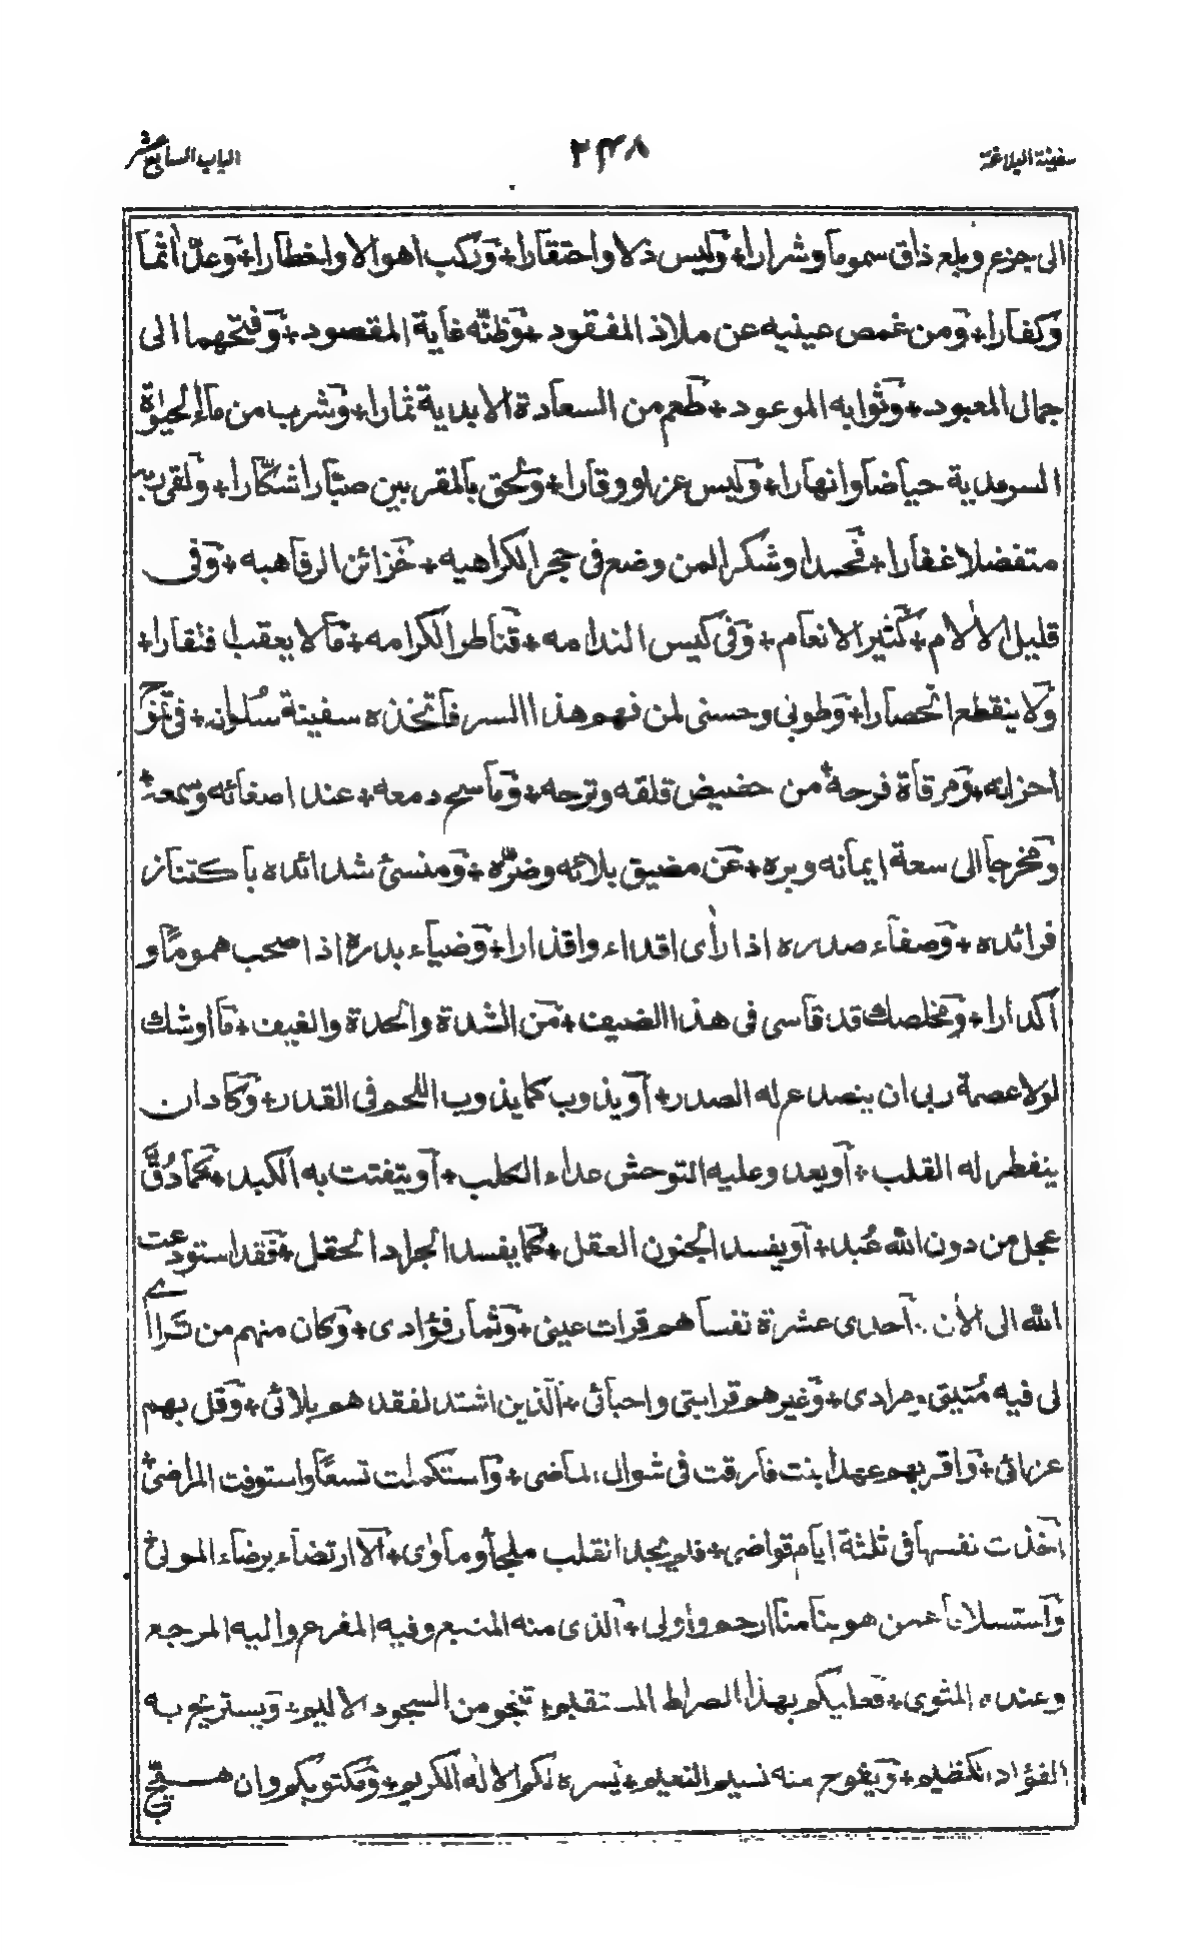 سفينة البلاغة
٢٤٨
الباب السابع عشر
الى جزع وبلعه ذاق سموما وشرارا + ولبس ذلا واحتقارا + وركب اهوالا واخطارا + وعدّ اثما
وكفارا + ومن غمص عينيه عن ملاذ المفقود + وظنّه غاية المقصود + وفتحهما الى
جمال المعبود + وثوابه الموعود + طعم من السعادة الابدية ثمارا + وشرب من ماء الحيٰوة
السرمدية حياضا وانهارا + ولبس عزا ووقارا + ولحق بالمقربين صبّارا شكّارا + ولقى ربه
متفضلا غفارا + فحمدا وشكرا لمن وضع فى حجر الكراهيه + خزائن الرفاهيه + وفى
قليل الاٰلام + كثير الانعام + وفى كيس الندامه + قناطر الكرامه + مالا يعقب افتقارا +
ولا ينقطع انحصارا + وطوبى وحسنى لمن فهم هذا السر فاتخذه سفينة سلوانه + فى تموّج
احزانه + ومرقاة فرحه من حضيض قلقه وترحه + وماسح دمعه + عند اصغائه وسمعه +
ومخرجا الى سعة ايمانه وبره + عن مضيق بلائه وضرّه + ومنسئ شدائده باكتناز
فرائده + وصفاء صدره اذا راٰى اقداء واقذارا + وضياء بدره اذا صحب هموما و
اكدارا + ومخلصك قد قاسى فى هذا الصيف + من الشدة والحدة والغيف + ما اوشك
لولا عصمة ربى ان ينصدع له الصدر + او يذوب كما يذوب اللحم فى القدر + وكاد ان
ينفطر له القلب + او يعدو عليه التوحش عداء الكلب + او يتفتت به الكبد + كما دُقَّ
عجل من دون الله عُبد + او يفسد الجنون العقل + كما يفسد الجراد الحقل + فقد استودعت
الله الى الاٰن احدى عشرة نفسا هم قرات عينى + وثمار فؤادى + وكان منهم من تراآى
لى فيه مُنيتى ومرادى + وغيرهم قرابتى واحبائى + الذين اشتد لفقدهم بلائى + وقل بهم
عزائى + واقربهم عهدا بنت فارقت فى شوال الماضى + واستكملت تسعًا واستوفت المراضى +
اخذت نفسها فى ثلثة ايام قواضى + فلم يجد القلب ملجأ ومأوٰى + الا ارتضاء برضاء المولى +
واستسلاما لمن هو بنا منا ارحم واولى + الذى منه المنبع وفيه المفرع واليه المرجع
وعنده المثوى + فعليكم بهذا الصراط المستقيم + تنجو من السجود الاليم + ويستريح به
الفؤاد الكظيم + ويفوح منه نسيم النعيم + يسره لكم الاله الكريم + ومكتوبكم وان هيّج